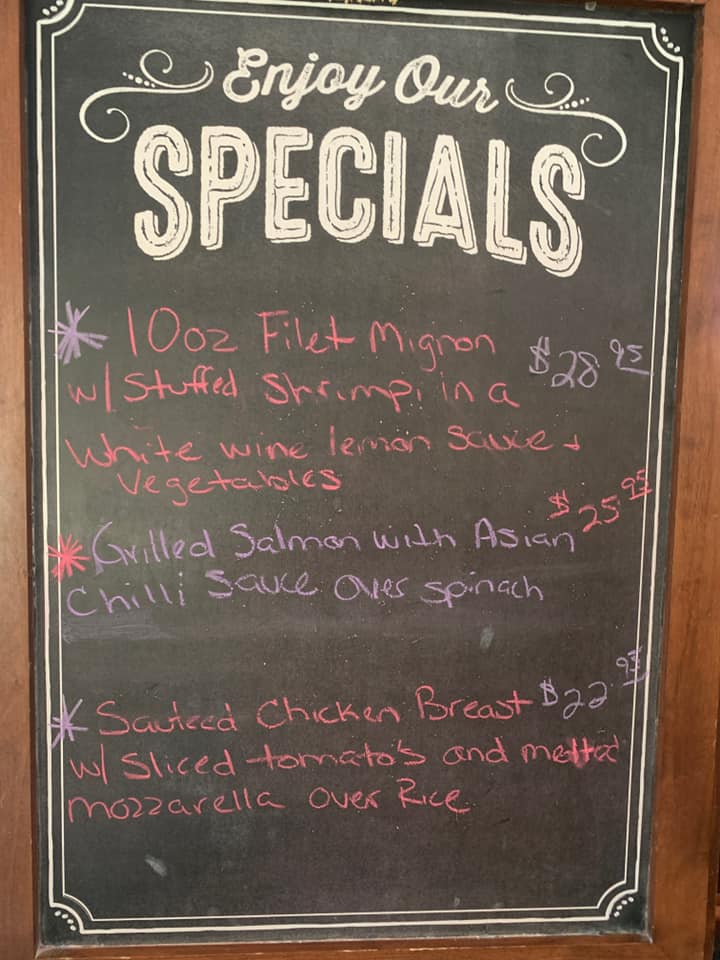 Enjoy Our
SPECIALS
10oz Filet Mignon $28.95
w/ Stuffed Shrimp, in a
white wine lemon sauce +
vegetables
$25.95
Grilled Salmon with Asian
Chilli Sauce over spinach
Sauteed Chicken Breast $22.95
w/ Sliced tomato's and melted
mozzarella over Rice